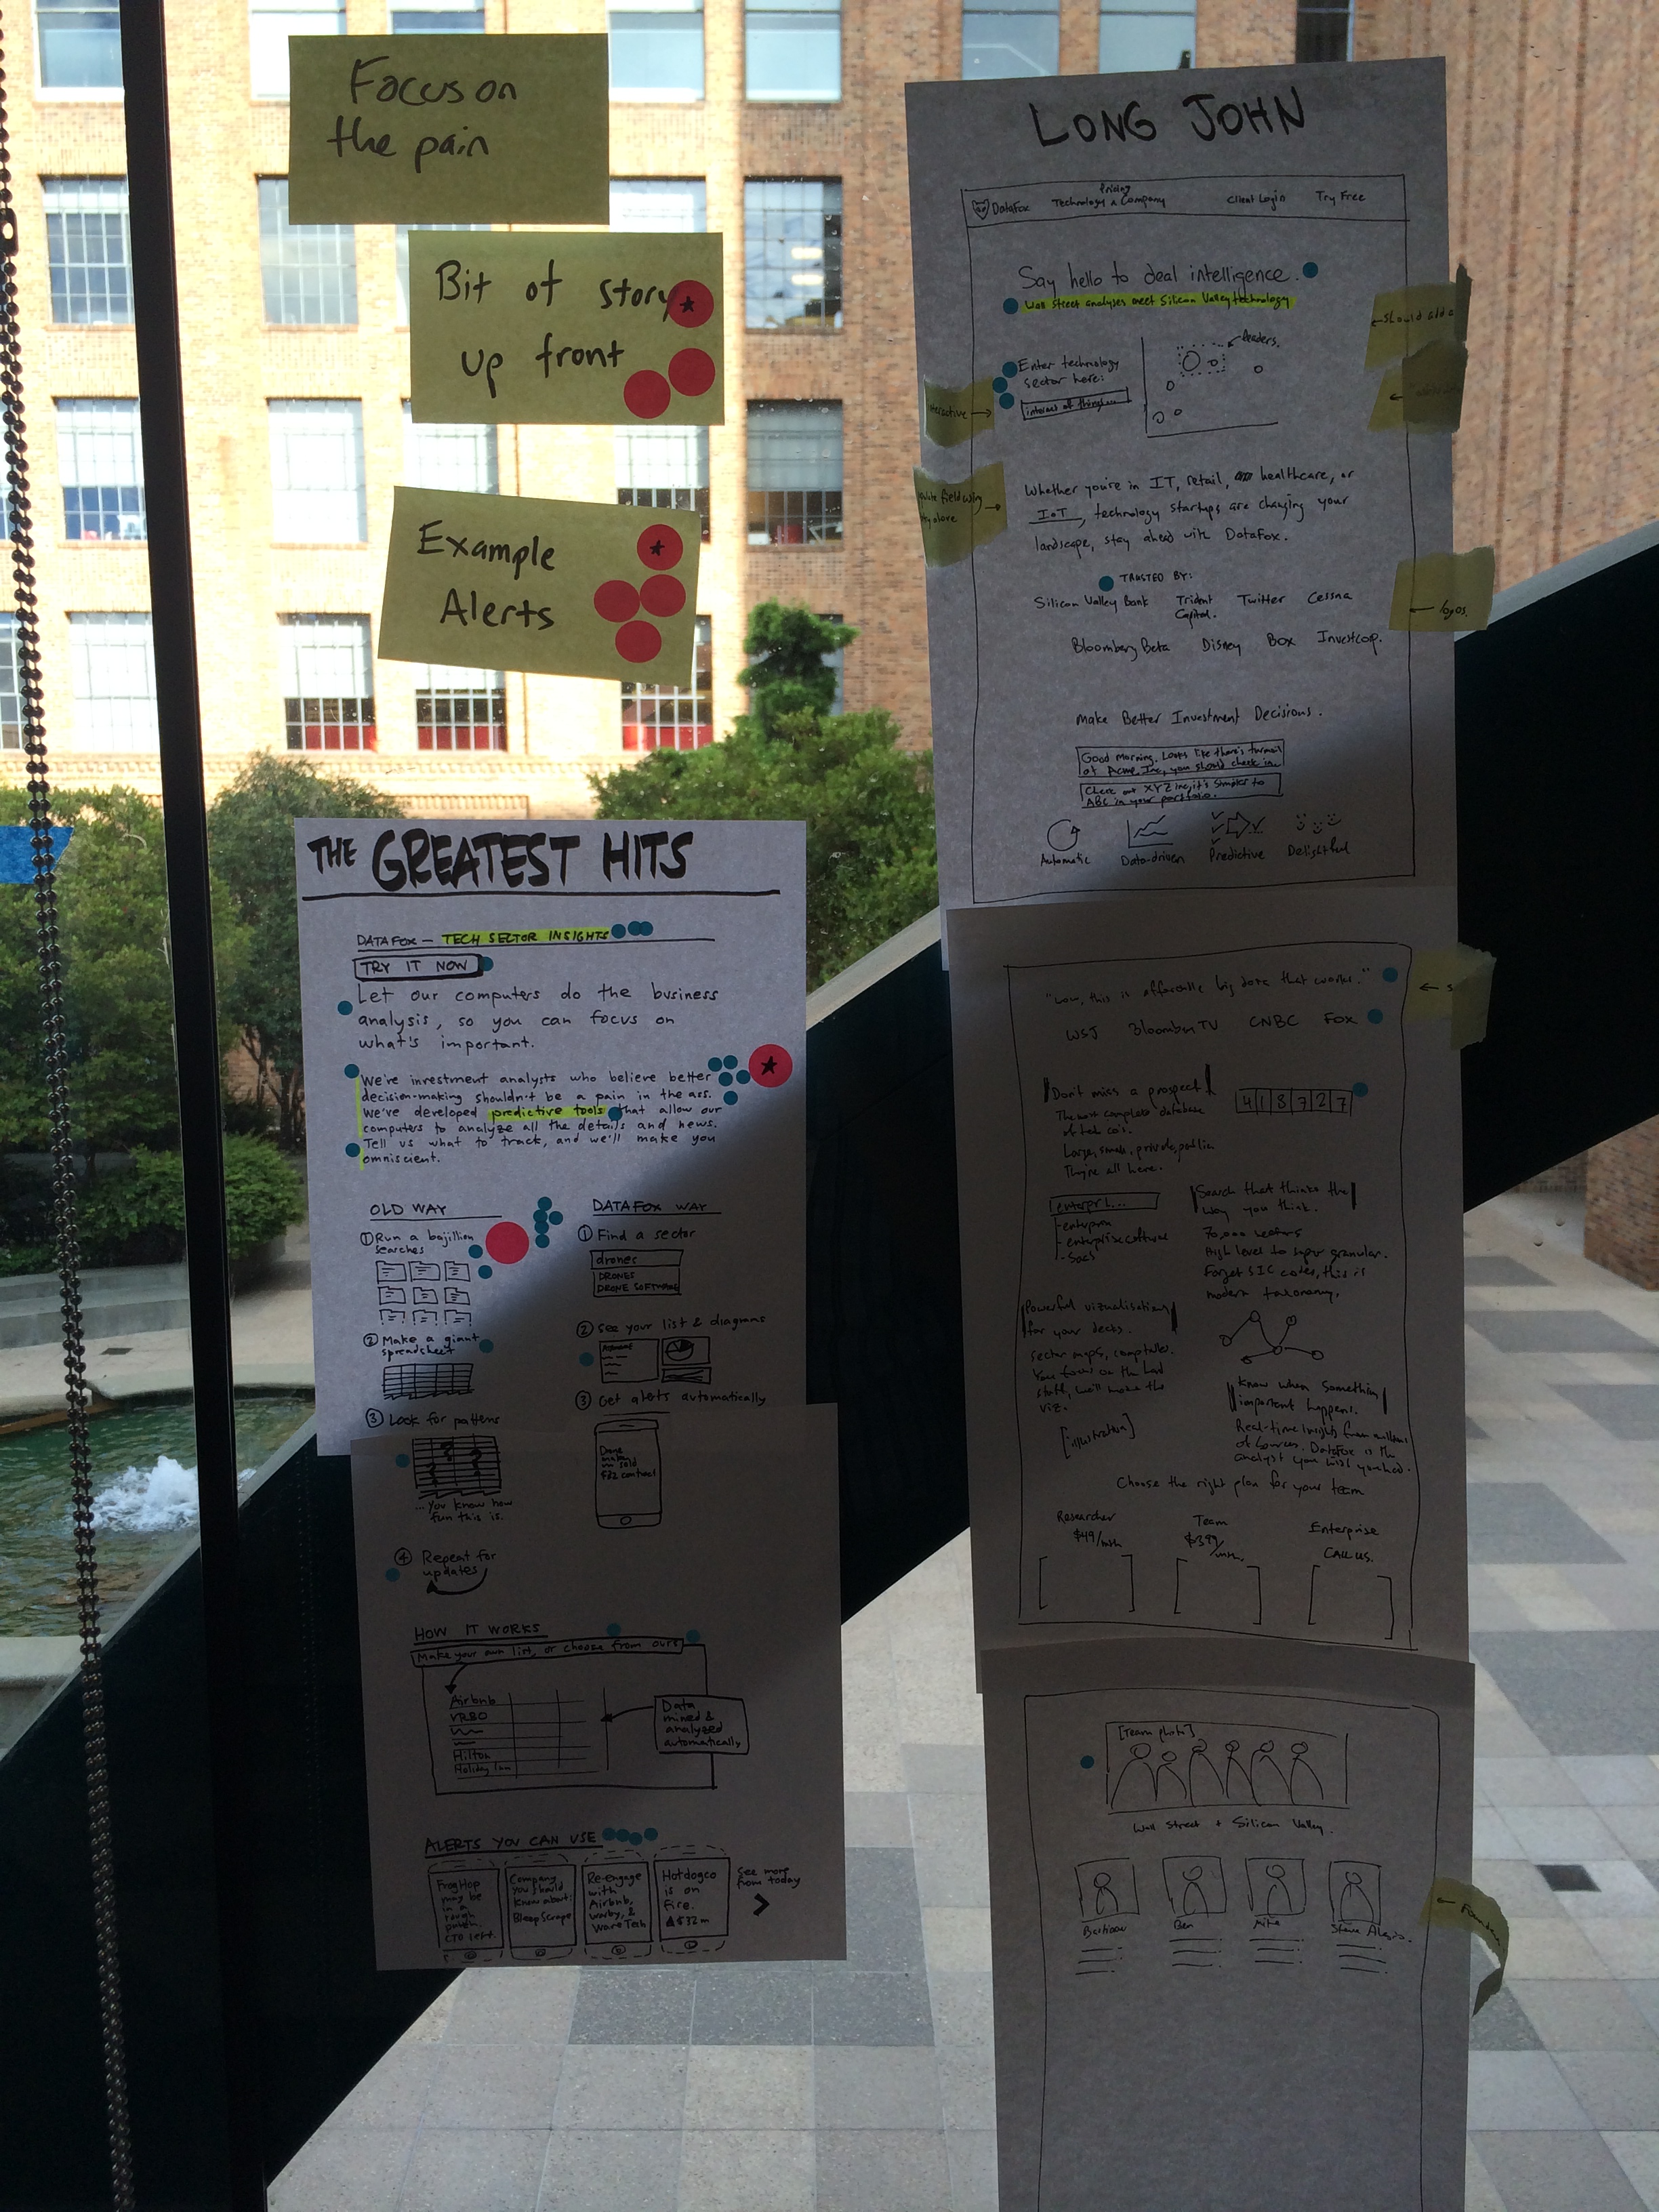 Focus on
the pain
Bit of story
up front
Example
Alerts
THE GREATEST HITS
DATAFOX — TECH SECTOR INSIGHTS
TRY IT NOW
Let our computers do the business
analysis, so you can focus on
what's important.
We're investment analysts who believe better
decision-making shouldn't be a pain in the ass.
We've developed predictive tools that allow our
computers to analyze all the details and news.
Tell us what to track, and we'll make you
omniscient.
OLD WAY
① Run a bajillion
searches
② Make a giant
spreadsheet
③ Look for patterns
...you know how
fun this is.
④ Repeat for
updates
DATAFOX WAY
① Find a sector
drones
DRONES
DRONE SOFTWARE
② See your list & diagrams
③ Get alerts automatically
Drone
sold
contract
HOW IT WORKS
Make your own list, or choose from ours
Airbnb
VRBO
Hilton
Holiday Inn
Data
mined &
analyzed
automatically
ALERTS YOU CAN USE
FrogHop
may be
in a
rough
patch.
CTO left.
Company
you should
know about:
BleepScrape
Re-engage
with
Airbnb,
Warby, &
WareTech
Hotdogco
is on
Fire.
▲$32m
See more
from today
LONG JOHN
DataFox
Pricing
Technology Company
Client Login
Try Free
Say hello to deal intelligence.
Wall Street analyses meet Silicon Valley technology
Enter technology
sector here:
internet of things...
leaders.
should add a
Whether you're in IT, retail, healthcare, or
IoT, technology startups are changing your
landscape, stay ahead with DataFox.
TRUSTED BY:
Silicon Valley Bank
Trident
Capital.
Twitter
Cessna
logos.
Bloomberg Beta
Disney
Box
Investcorp.
Make Better Investment Decisions.
Good morning. Looks like there's turmoil
at Acme, Inc, you should check in.
Check out XYZ inc, it's similar to
ABC in your portfolio.
Automatic
Data-driven
Predictive
Delightful
"Wow, this is affordable big data that works."
WSJ
Bloomberg TV
CNBC
FOX
Don't miss a prospect
The most complete database
of tech co's.
Large, small, private, public
They're all here.
4 1 8 7 2 7
enterpri...
-enterprise
-enterprise software
-SaaS
Search that thinks the
way you think.
70,000 sectors
High level to super granular.
Forget SIC codes, this is
modern taxonomy.
Powerful vizualisations
for your decks.
sector maps, comp tables.
You focus on the hard
stuff, we'll make the
viz.
[illustration]
Know when something
important happens.
Real-time insights from millions
of sources. DataFox is the
analyst you wish you had.
Choose the right plan for your team
Researcher
$49/mth
Team
$399/mth.
Enterprise
CALL US.
[Team photo]
Wall Street + Silicon Valley.
Bastiaan
Ben
Mike